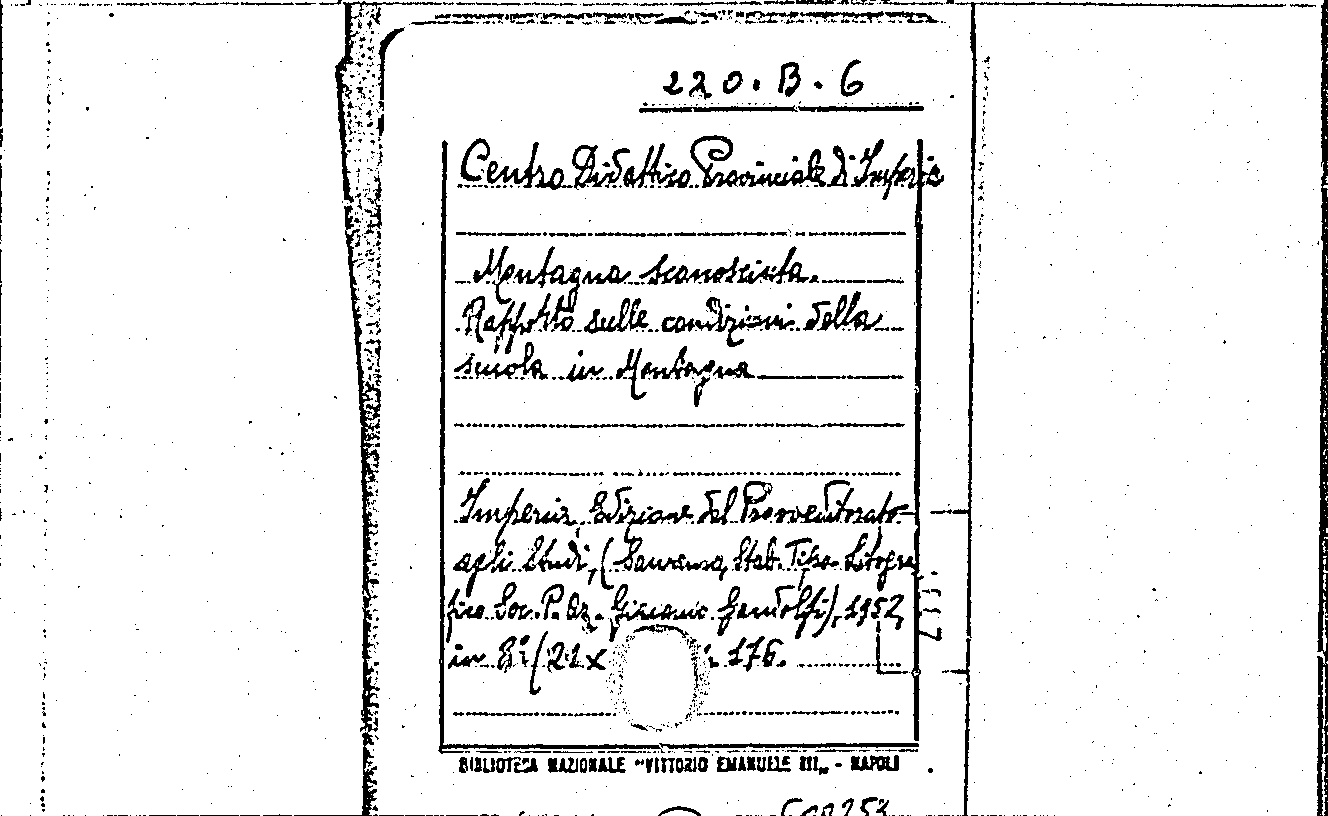 220. B. 6
Centro Didattico Provinciale di Imperia
Montagna sconosciuta.
Rapporto sulle condizioni della
scuola in Montagna
Imperia, Edizione del Provveditorato
agli Studi, (Sanremo, Stab. Tipo-Litogra
fico Soc. P. Az. Giacomo Gandolfi), 1952,
in 8º (21 x 176.
BIBLIOTECA NAZIONALE "VITTORIO EMANUELE III" - NAPOLI